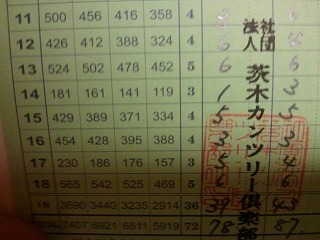 11 500 456 416 358 4
12 426 412 388 324 4 6
13 524 502 478 452 5 6 6
14 181 161 141 119 3 1 3
15 429 389 371 334 4 5 5
16 454 428 395 388 4 3 3
17 230 186 176 157 3 5 4
18 565 542 525 469 5 6
IN 3890 3440 3235 2914 36 39 43
TOTAL 7407 6921 6511 5919 72 78 87
社団法人 茨木カンツリー倶楽部